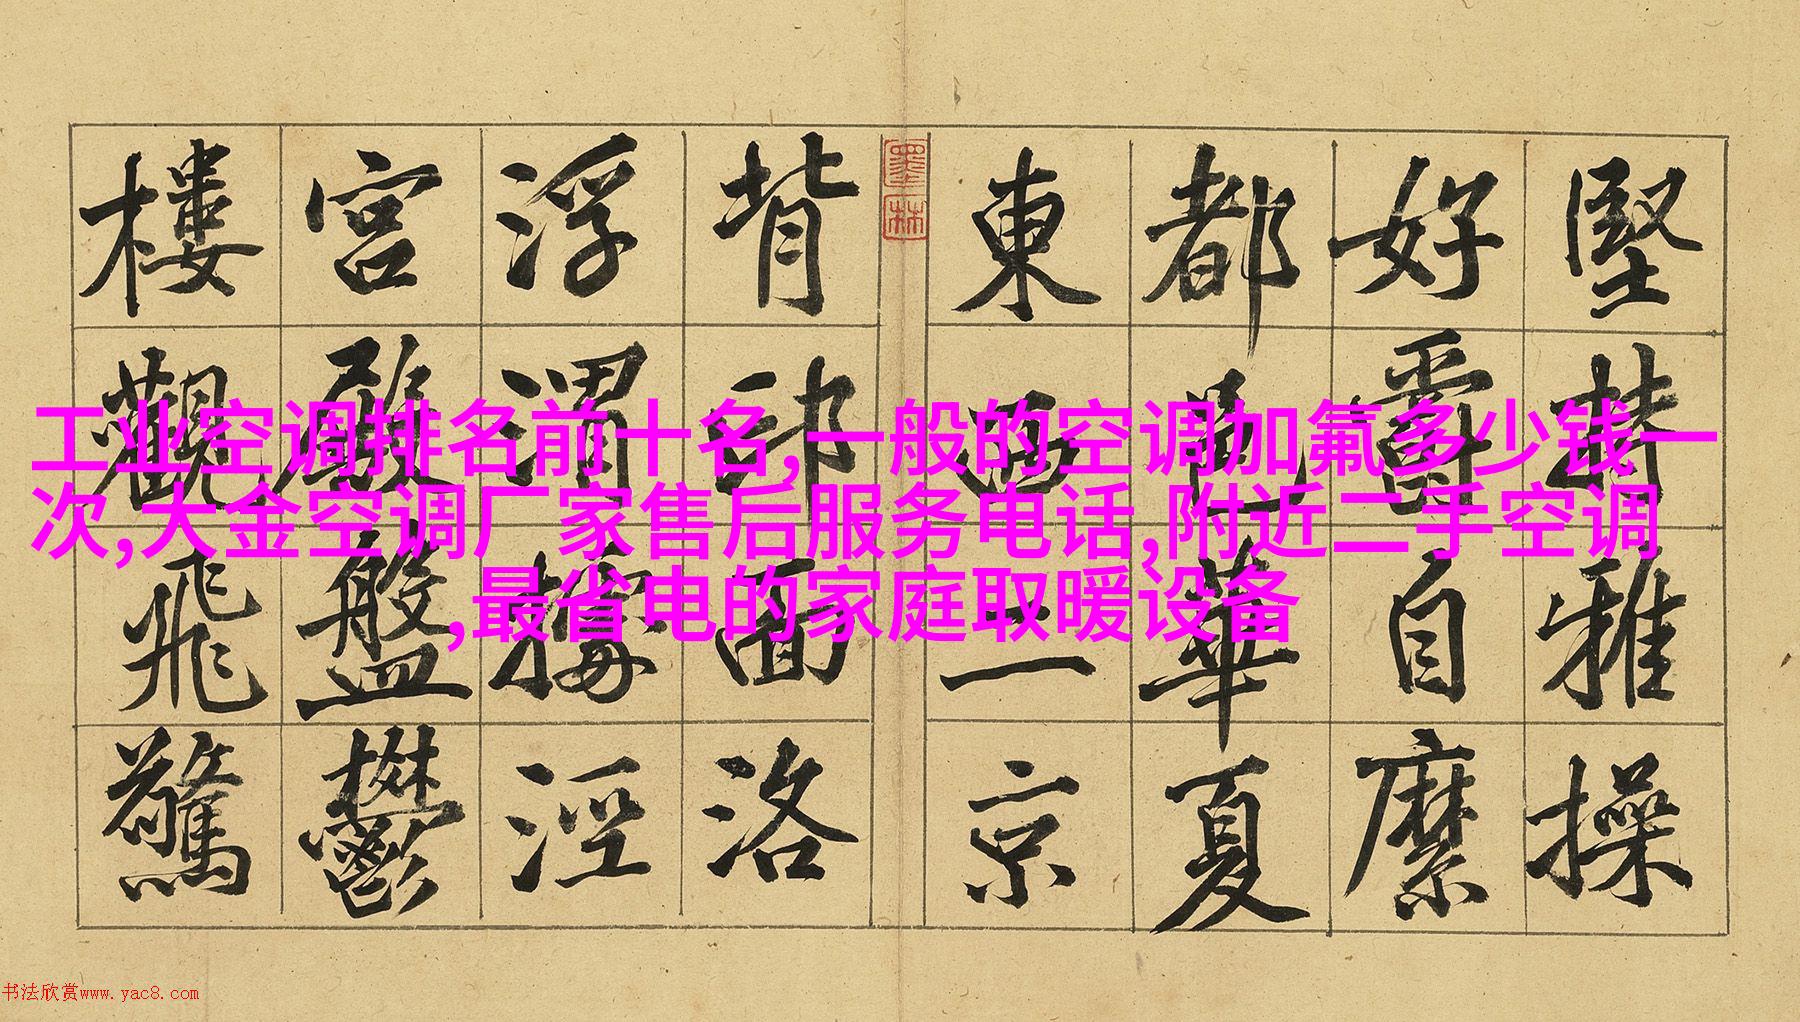 堅持雅操
好爵自縻
都邑華夏
東西二京
墨林
背邙面洛
浮渭據涇
宮殿盤鬱
樓觀飛驚
工业空调排名前十名,一般的空调加氟多少钱一
次,大金空调厂家售后服务电话,附近二手空调
,最省电的家庭取暖设备
书法欣赏www.yac8.com